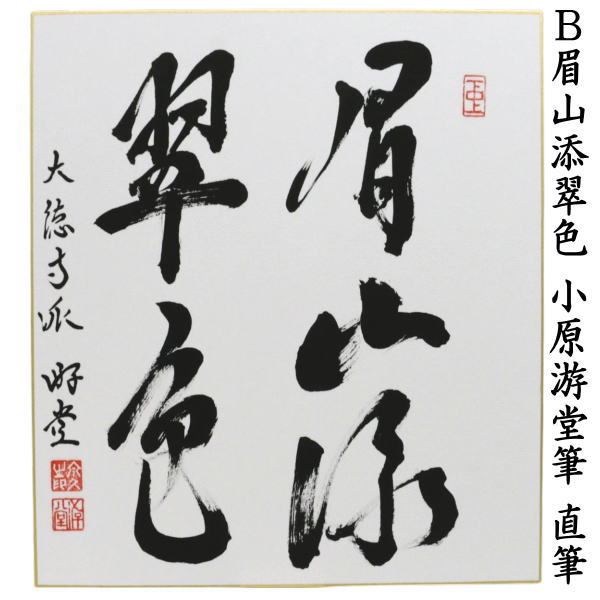 B眉山添翠色 小原游堂筆 直筆
眉山添
翠色
大徳寺派 游堂